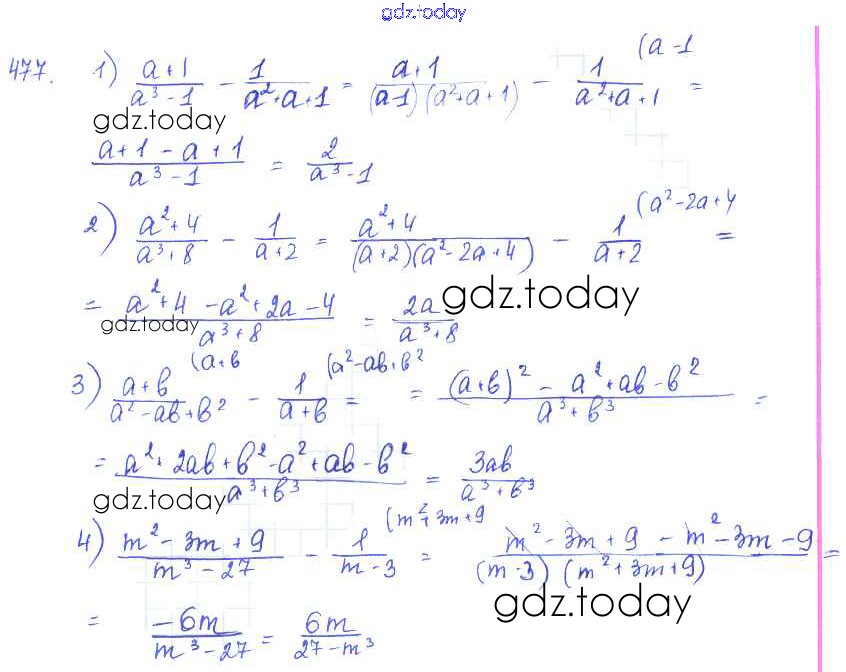 gdz.today
477. 1) (a+1)/(a³-1) - 1/(a²+a+1) = (a+1)/((a-1)(a²+a+1)) - 1/(a²+a+1) (a-1 =
gdz.today
(a+1-a+1)/(a³-1) = 2/(a³-1)
2) (a²+4)/(a³+8) - 1/(a+2) = (a²+4)/((a+2)(a²-2a+4)) - 1/(a+2) (a²-2a+4 =
= (a²+4-a²+2a-4)/(a³+8) = 2a/(a³+8) gdz.today
gdz.today
3) (a+b)/(a²-ab+b²) (a+b - 1/(a+b) (a²-ab+b² = = ((a+b)²-a²+ab-b²)/(a³+b³) =
= (a²+2ab+b²-a²+ab-b²)/(a³+b³) = 3ab/(a³+b³)
gdz.today
4) (m²-3m+9)/(m³-27) - 1/(m-3) (m²+3m+9 = (m²-3m+9-m²-3m-9)/((m-3)(m²+3m+9)) =
gdz.today
= (-6m)/(m³-27) = 6m/(27-m³)